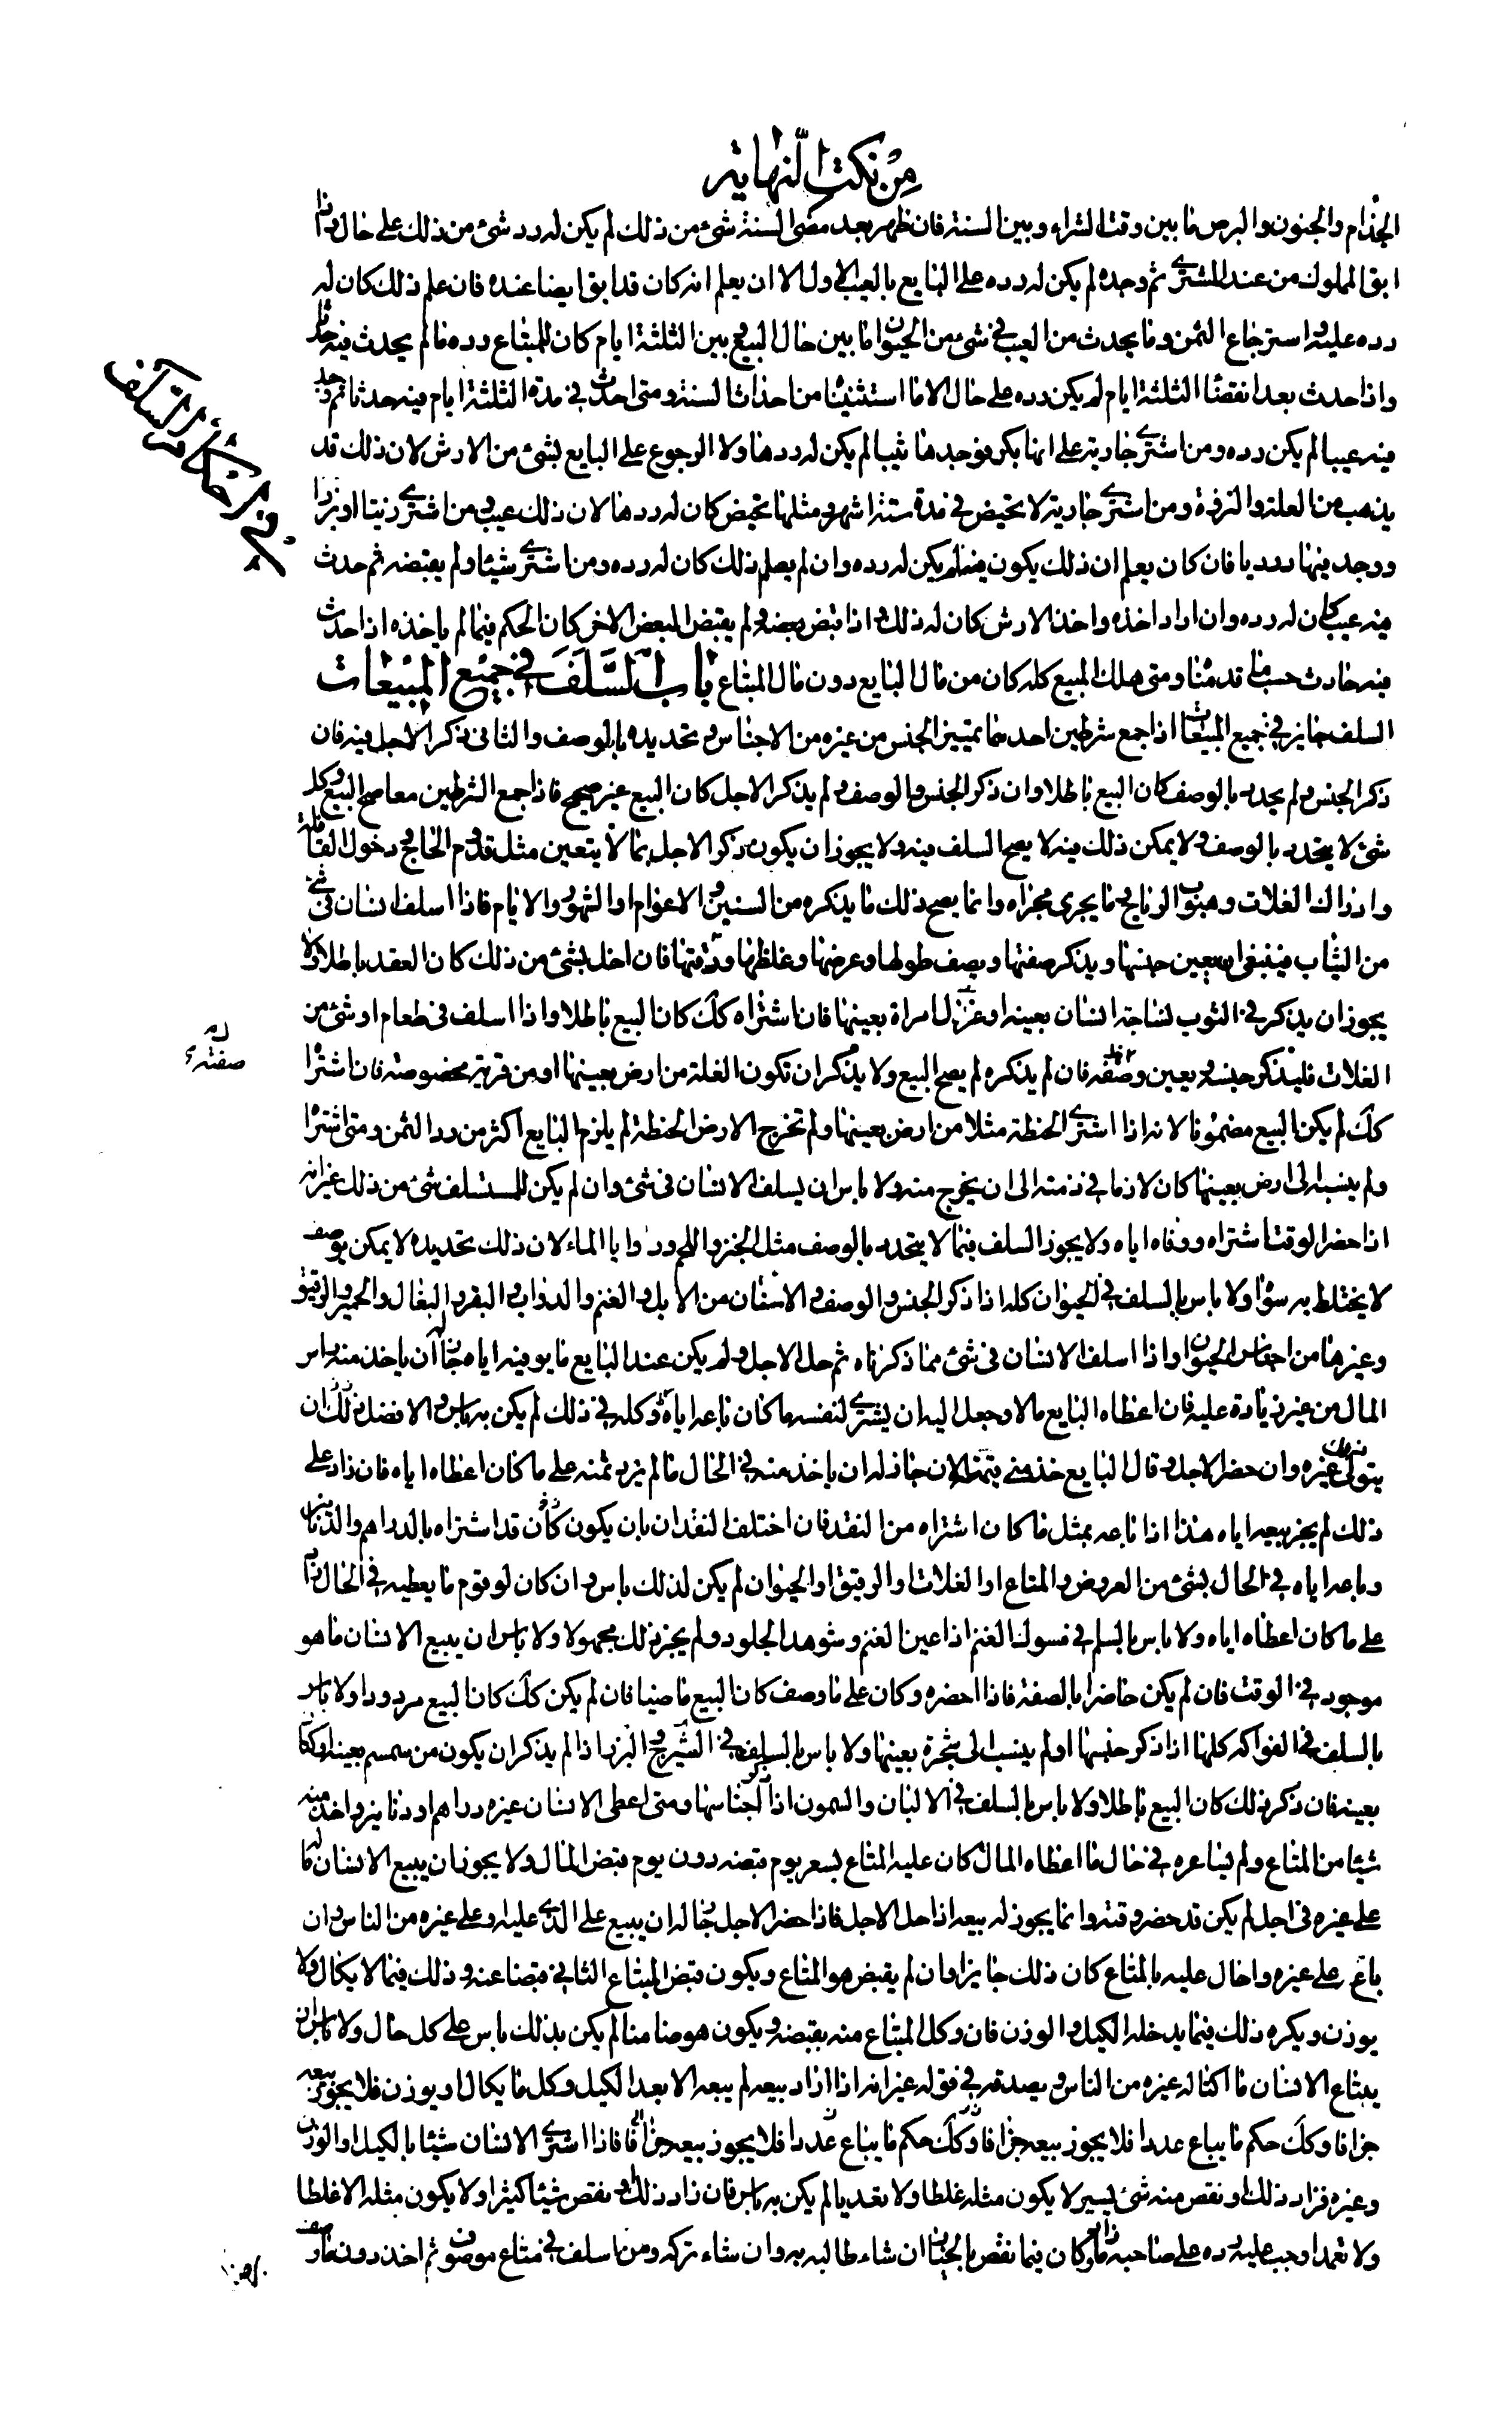 من نكت النهاية
الجذام والجنون والبرص ما بين وقت الشراء وبين السنة فان ظهر بعد مضى السنة شئ من ذلك لم يكن له رد شئ من ذلك على حال واذا
ابق المملوك من عند المشترى ثم وجده لم يكن له رده على البايع بالعيب الاول الا ان يعلم انه كان قد ابق ايضا عنده فان علم ذلك كان له
رده عليه و استرجاع الثمن وما يحدث من العيب فى شئ من الحيوان ما بين حال البيع بين الثلثة ايام كان للمبتاع رده مالم يحدث فيه حدثا
واذا حدث بعد انقضا الثلثة ايام لم يكن رده على حال الا ما استثنيناه من احداث السنة ومتى احدث فى مدة الثلثة ايام فيه حدثا ثم وجد
فيه عيبا لم يكن رده ومن اشترى جارية على انها بكر فوجدها ثيبا لم يكن له ردها ولا الرجوع على البايع بشئ من الارش لان ذلك قد
يذهب من العلة والنزوة ومن اشترى جارية لا تحيض فى مدة ستة اشهر ومثلها تحيض كان له ردها لان ذلك عيب ومن اشترى زيتا او بزرا
ووجد فيها درديا فان كان يعلم ان ذلك يكون فيه لم يكن له رده وان لم يعلم ذلك كان له رده ومن اشترى شيئا ولم يقبضه ثم حدث
فيه عيب كان له رده وان اراد اخذه واخذ الارش كان له ذلك واذا قبض بعضه و لم يقبض البعض الاخر كان الحكم فيما لم ياخذه اذا حدث
فيه حادث حسب ما قدمناه ومتى هلك المبيع كله كان من مال البايع دون مال المبتاع باب السلف فى جميع المبيعات
السلف جايز فى جميع المبيعات اذا جمع شرطين احدهما تمييز الجنس من غيره من الاجناس و تحديده بالوصف والثانى ذكر الاجل فيه فان
ذكر الجنس و لم يحدد بالوصف كان البيع باطلا وان ذكر الجنس و الوصف و لم يذكر الاجل كان البيع غير صحيح فاذا جمع الشرطين معا صح البيع وكل
شئ لا يتحدد بالوصف و لا يمكن ذلك فيه لا يصح السلف فيه ولا يجوز ان يكون ذكر الاجل بما لا يتعين مثل قدوم الحاج و دخول القافلة
وادراك الغلات وهبوب الرياح و ما يجرى مجراه وانما يصح ذلك ما يذكره من السنين و الاعوام او الشهور و الايام فاذا اسلف انسان فى شئ
من الثياب فينبغى ان يعين جنسها ويذكر صفتها ويصف طولها وعرضها وغلظها ودقتها فان اخل بشئ من ذلك كان العقد باطلا ولا
يجوز ان يذكر فى الثوب نساجة انسان بعينه او غزل امراة بعينها فان اشتراه كك كان البيع باطلا واذا اسلف فى طعام او شئ من
الغلات فليذكر جنسه و يعين وصفه فان لم يذكره لم يصح البيع ولا يذكر ان تكون الغلة من ارض بعينها او من قرية مخصوصة فان اشتراه
كك لم يكن البيع مضمونا لانه اذا اشترى الحنطة مثلا من ارض بعينها ولم تخرج الارض الحنطة لم يلزم البايع اكثر من رد الثمن ومتى اشتراه
ولم ينسبه الى ارض بعينها كان لازما فى ذمته الى ان يخرج منه ولا باس ان يسلف الانسان فى شئ وان لم يكن للمستسلف شئ من ذلك غير انه
اذا حضر الوقت اشتراه ووفاه اياه ولا يجوز السلف فيما لا يتحدد بالوصف مثل الخبز و اللحم وروايا الماء لان ذلك تحديده لا يمكن بوصف
لا يختلط به سواه ولا باس بالسلف فى الحيوان كله اذا ذكر الجنس و الوصف و الاسنان من الابل و الغنم والدواب و البقر و البغال والحمير والرقيق
وغيرها من اجناس الحيوان واذا اسلف الانسان فى شئ مما ذكرناه ثم حل الاجل و لم يكن عند البايع ما يوفيه اياه جاز له ان ياخذ منه راس
المال من غير زيادة عليه فان اعطاه البايع مالا وجعل اليه ان يشترى لنفسه ما كان باعه اياه و وكله فى ذلك لم يكن به باس و الافضل فى ذلك ان
يتولى غيره وان حضر الاجل و قال البايع خذ منى قيمته الان جاز له ان ياخذ منه فى الحال مالم يزد ثمنه على ما كان اعطاه اياه فان زاد على
ذلك لم يجز بيعه اياه هذا اذا باعه بمثل ما كان اشتراه من النقد فان اختلف النقدان بان يكون كان قد اشتراه بالدراهم والدنانير
وباعه اياه فى الحال بشئ من العروض و المتاع او الغلات او الرقيق او الحيوان لم يكن لذلك باس و ان كان لو قوم ما يعطيه فى الحال زاد
على ما كان اعطاه اياه ولا باس بالسلم فى مسوك الغنم اذا عين الغنم وشوهد الجلود و لم يجز ذلك مجهولا ولا باس ان يبيع الانسان ما هو
موجود فى الوقت فان لم يكن حاضرا بالصفة فاذا احضره وكان على ما وصف كان البيع ماضيا فان لم يكن كك كان البيع مردودا ولا باس
بالسلف فى الفواكه كلها اذا ذكر جنسها او لم ينسب الى شجرة بعينها ولا باس بالسلف فى الشيرج و البزر اذا لم يذكر ان يكون من سمسم بعينه او كتان
بعينه فان ذكر ذلك كان البيع باطلا ولا باس بالسلف فى الالبان والسمون اذا اجناسها ومتى اعطى الانسان غيره دراهم او دنانير و اخذ منه
شيئا من المتاع ولم يساعره فى حال ما اعطاه المال كان عليه المتاع بسعر يوم قبضه دون يوم قبض المال ولا يجوز ان يبيع الانسان ماله
على غيره فى اجل لم يكن قد حضر وقته وانما يجوز له بيعه اذا حل الاجل فاذا حضر الاجل جاز له ان يبيع على الذى عليه و على غيره من الناس و ان
باع على غيره واحال عليه بالمتاع كان ذلك جايزا وان لم يقبض هو المتاع ويكون قبض المبتاع الثانى قبضا عنه و ذلك فيما لا يكال ولا
يوزن و يكره ذلك فيما يدخله الكيل و الوزن فان وكل المبتاع منه بقبضه و يكون هو ضامنا لم يكن بذلك باس على كل حال ولا باس ان
يبتاع الانسان ما اكتاله غيره من الناس و يصدقه فى قوله غير انه اذا اراد بيعه لم يبعه الا بعد الكيل وكل ما يكال او يوزن فلا يجوز بيعه
جزافا وكك حكم ما يباع عددا فلا يجوز بيعه جزافا وكك حكم ما يباع عددا فلا يجوز بيعه جزافا فاذا اشترى الانسان شيئا بالكيل او الوزن
وغيره فزاد ذلك او نقص منه شئ يسير لا يكون مثله غلطا ولا تعديا لم يكن به باس فان زاد ذلك او نقص شيئا كثيرا ولا يكون مثله الا غلطا
ولا تعمدا وجب عليه رده على صاحبه ما زاد وكان فيما نقص بالخيار ان شاء طالبه به وان شاء تركه ومن اسلف فى متاع موصوف ثم اخذ دون ما وصف
صفته